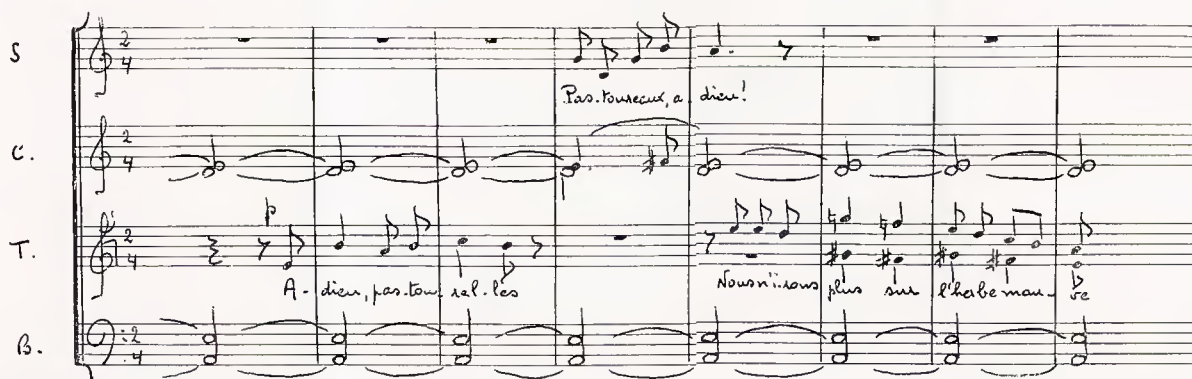 S 2 4
Pas-toureaux, a dieu!
C. 2 4
T. 2 4 p
A-dieu, pas-tou rel-les Nous n'i-rons plus sur l'herbe mau-ve
B. 2 4